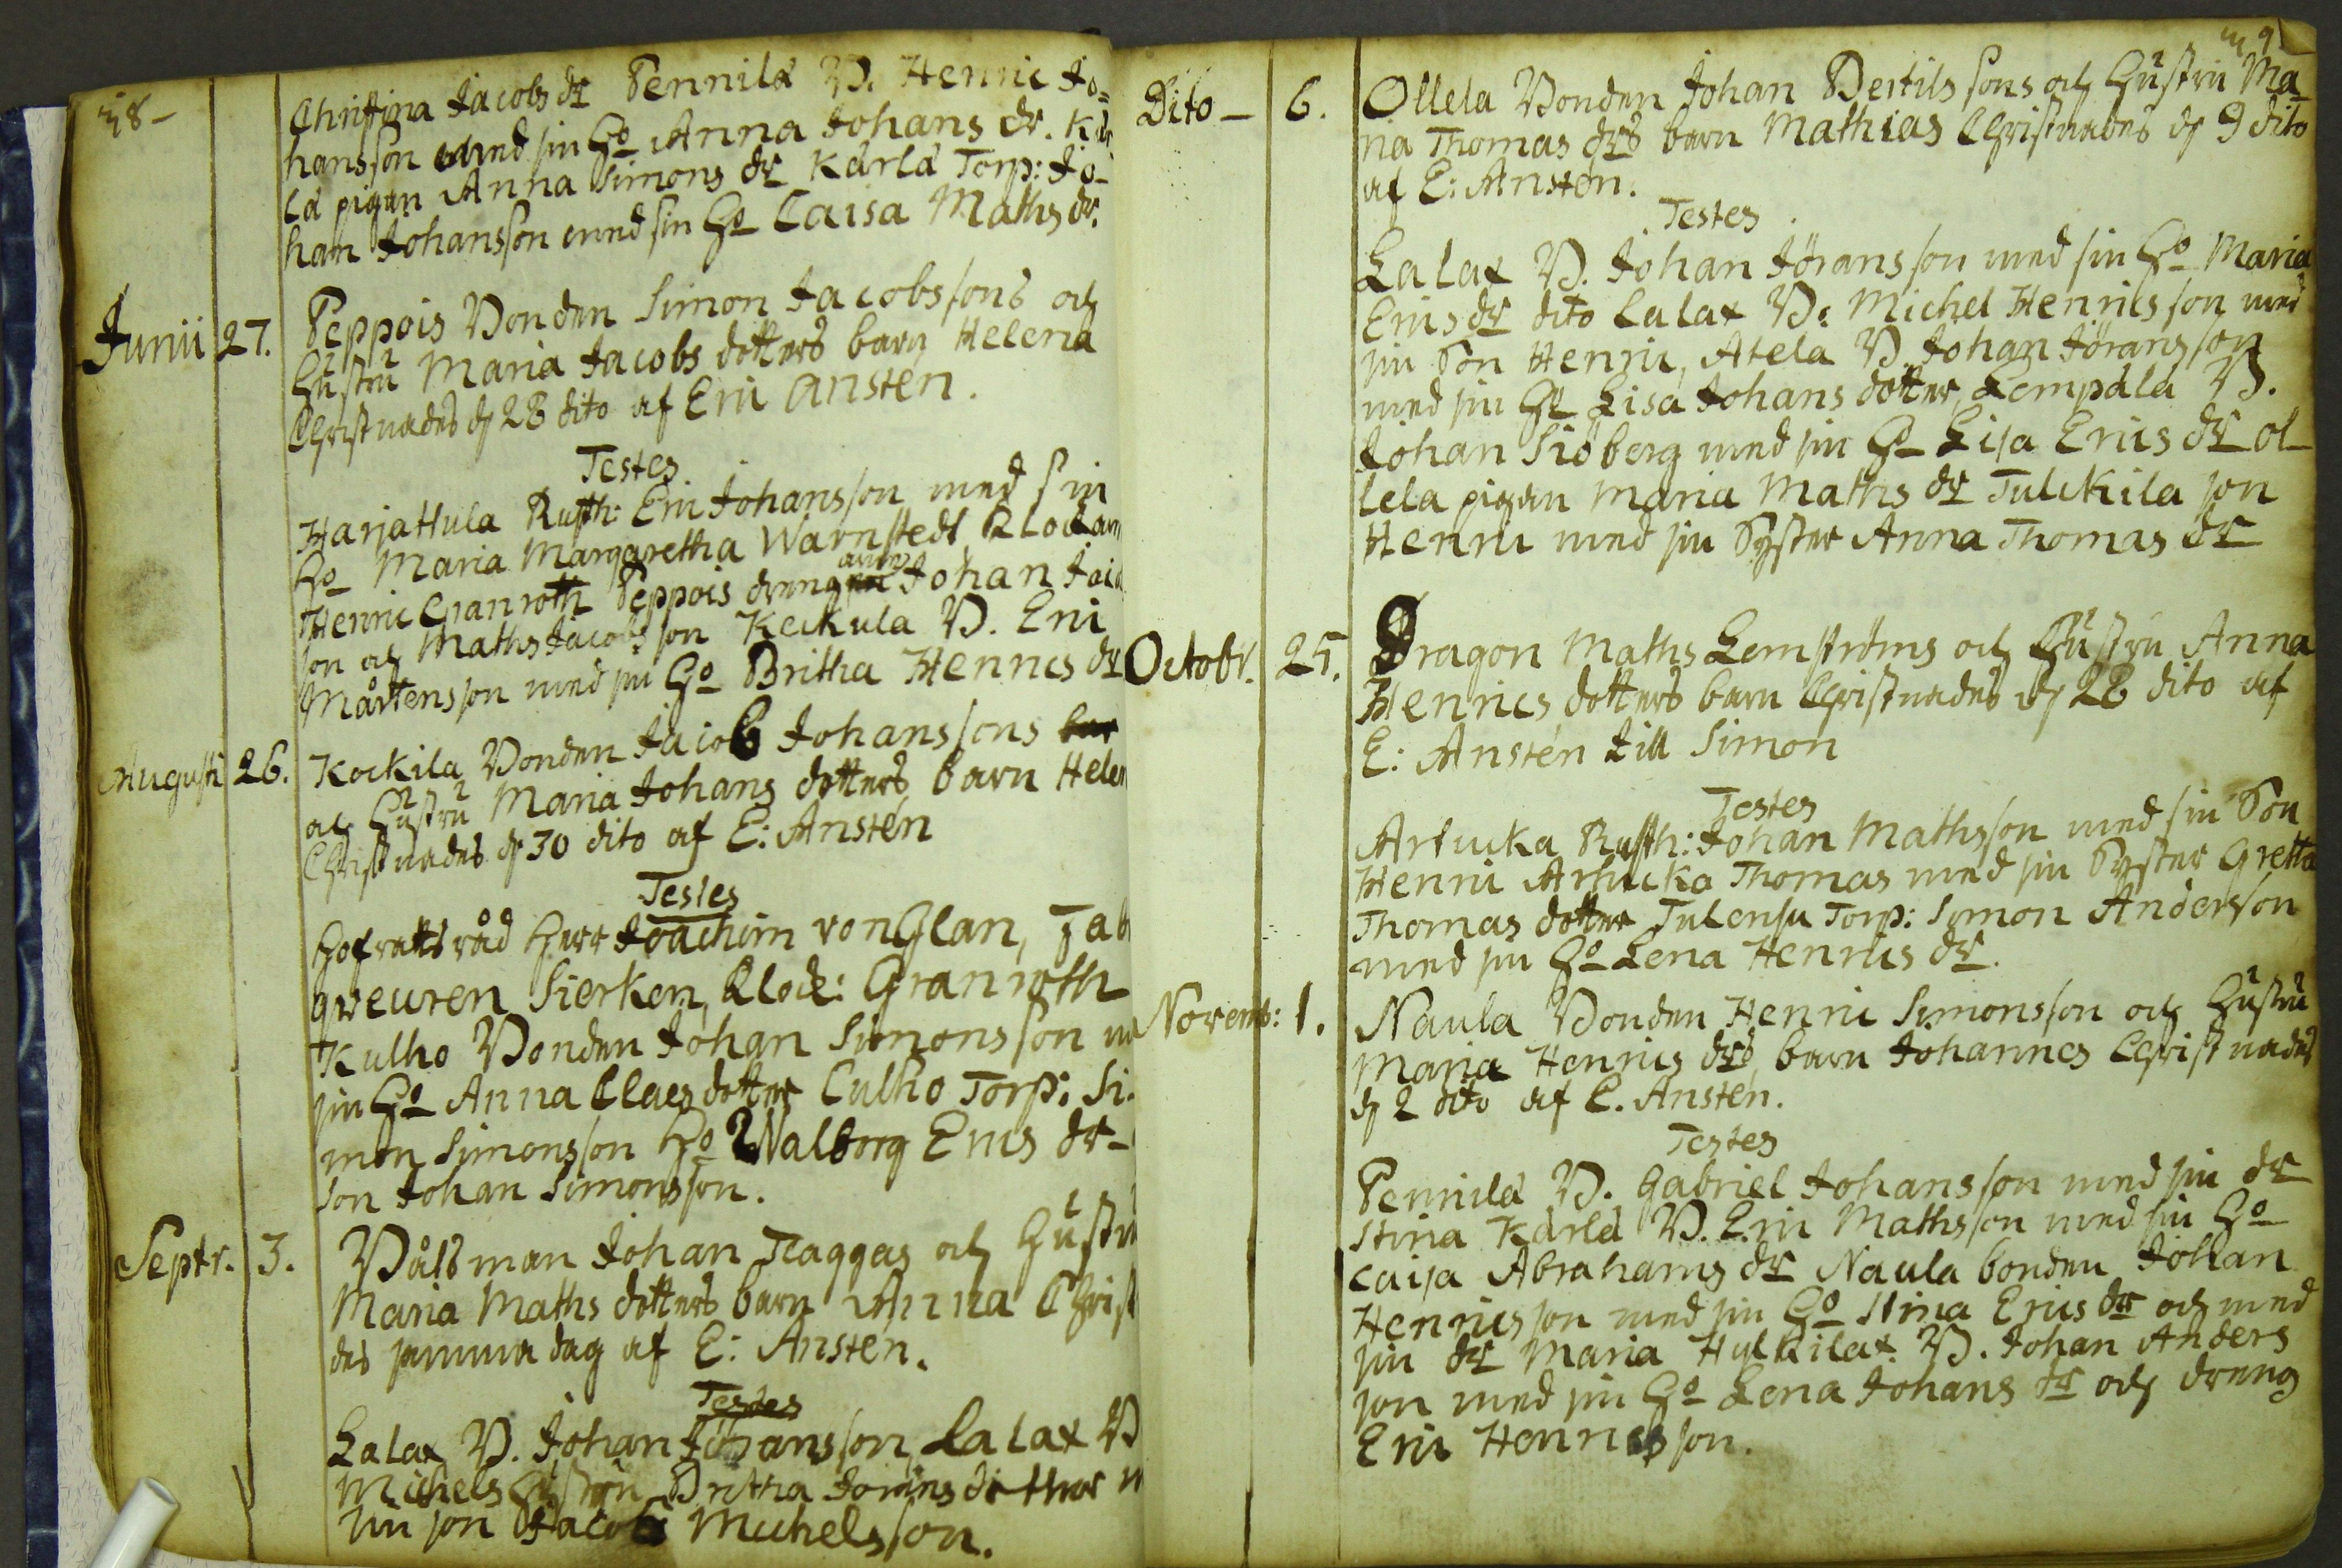 38-
Christina Jacobs dr Pennilä B. Henric Jo=
hansson med sin Ho Anna Johans dr. Kär
lä pigan Anna Simons dr Kärlä Torp: Jo-
han Johansson med sin Ho Caisa Maths dr.
Junii 27. Peppois Bonden Simon Jacobssons och
Hustru Maria Jacobs dotters barn Helena
Christnades d 28 dito af Eric Anstén.
Testes
Harjattula Rusth: Eric Johansson med sin
Ho Maria Margaretha Warnstedt Klockaren
Henric Granroth Peppois drengarne Johan Jac
son och Maths Jacobsson Keckula B. Eric
Mårtensson med sin Ho Britha Henrics dr
Augusti 26. Kockila Bonden Jacob Johanssons bar
och Hustru Maria Johans dotters barn Helen
Christnades d 30 dito af E: Anstén
Testes
Hofrätts råd Herr Joachim von Glan, Fab
qveuren Sierken, Klock: Granroth
Kulho Bonden Johan Simonsson me
sin Ho Anna Claes dotter Culho Torp: Si-
mon Simonsson Ho Walborg Erics dr-
son Johan Simonsson.
Septr. 3. Båtsman Johan Flaggas och Hustru
Maria Maths dotters barn Anna Christ
des samma dag af E: Anstén.
Testes
Lalax B. Johan Jöransson, Lalax B
Michels Hustru Britha dotter m
sin son Jacob Michelsson.
Dito- 6. Ollela Bonden Johan Bertils sons och Hustru Ma
ria Thomas drs barn Mathias Christnades d 9 dito
af E: Anstén.
Testes
Lalax B. Johan Jöransson med sin Ho Maria
Erics dr dito Lalax B: Michel Henricsson med
sin Son Henric, Atela B. Johan Jöransson
med sin Ho Lisa Johans dotter, Lempälä B.
Johan Siöberg med sin Ho Lisa Erics dr ol-
lela pigan Maria Maths dr Tulckila son
Henric med sin Syster Anna Thomas dr
Octobr. 25. Dragon Maths Lemströms och Hustru Anna
Henrics dotters barn Christnades d 28 dito af
E: Anstén till Simon
Testes
Artucka Rusth: Johan Mathsson med sin Son
Henric Artucka Thomas med sin Syster Gretta
Thomas dotter Tulensu Torp: Simon Andersson
med sin Ho Lena Henrics dr.
Novemb: 1. Naula Bonden Henric Simonsson och Hustru
Maria Henrics drs barn Johannes Christnades
d 2 dito af E. Anstén.
Testes
Pennilä B. Gabriel Johansson med sin dr
Stina Kärlä B. Eric Mathsson med sin Ho
Caisa Abrahams dr Naula bonden Johan
Henricsson med sin Ho Stina Erics dr och med
sin dr Maria Hylkilax B. Johan Anders
son med sin Ho Lena Johans dr och dreng
Eric Henricsson.